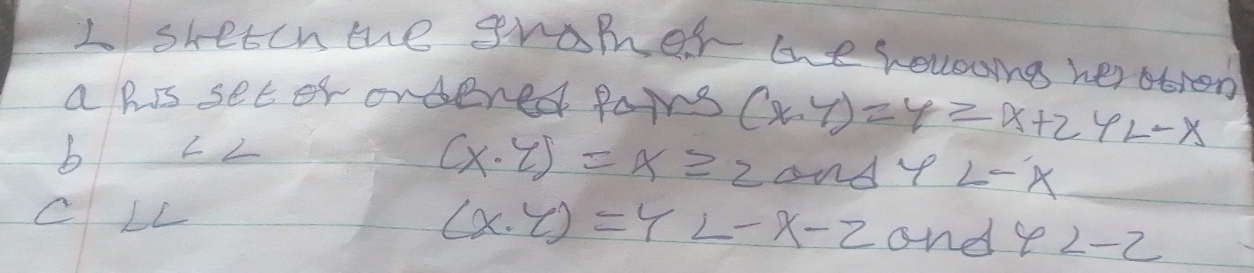 1 sketch the graph of the following relation
a R is set of ordered pairs (x.y) = y ≥ x+2 y < -x
b " (x.y) = x ≥ 2 and y < -x
c " (x.y) = y < -x-2 and y < -2